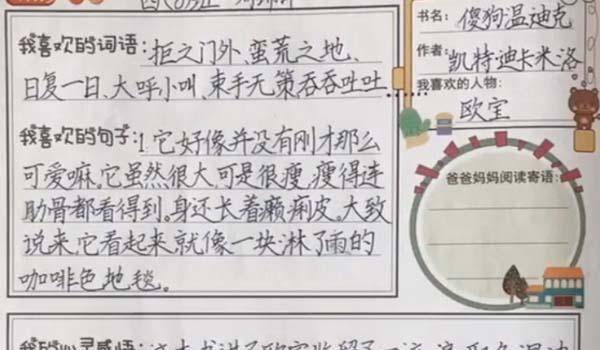 我喜欢的词语:拒之门外、蛮荒之地、
日复一日、大呼小叫、束手无策吞吞吐吐……
我喜欢的句子:1.它好像并没有刚才那么
可爱嘛。它虽然很大,可是很瘦,瘦得连
肋骨都看得到。身还长着癞痢皮。大致
说来,它看起来就像一块淋了雨的
咖啡色地毯。
书名:傻狗温迪克
作者:凯特迪卡米洛
我喜欢的人物:
欧宝
爸爸妈妈阅读寄语:
我的心灵感悟: